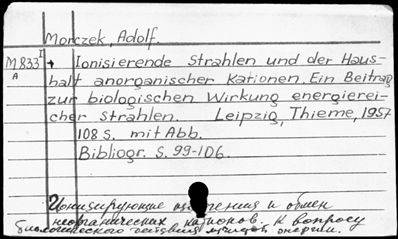 Morczek, Adolf.
M 833 I + Ionisierende Strahlen und der Haus-
A halt anorganischer Kationen. Ein Beitrag
zur biologischen Wirkung energierei-
cher Strahlen. Leipzig, Thieme, 1957
108 S. mit Abb.
Bibliogr. S. 99-106.
Ионизирующие излучения и обмен
неорганических катионов. К вопросу
биологического действия лучистой энергии.